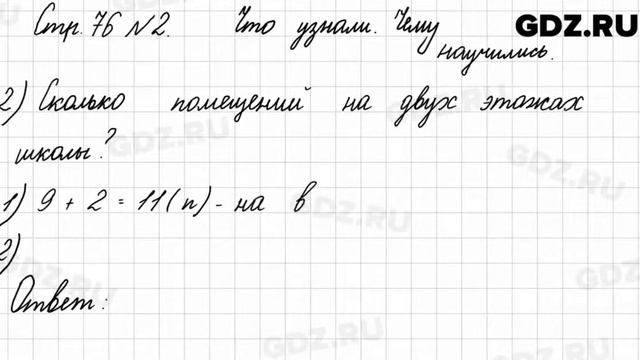 GDZ.RU
Стр. 76 №2. Что узнали. Чему
научились.
2) Сколько помещений на двух этажах
школы?
1) 9 + 2 = 11 (п) - на в
2)
Ответ:
GDZ.RU
GDZ.RU
GDZ.RU
GDZ.RU
GDZ.RU
GDZ.RU